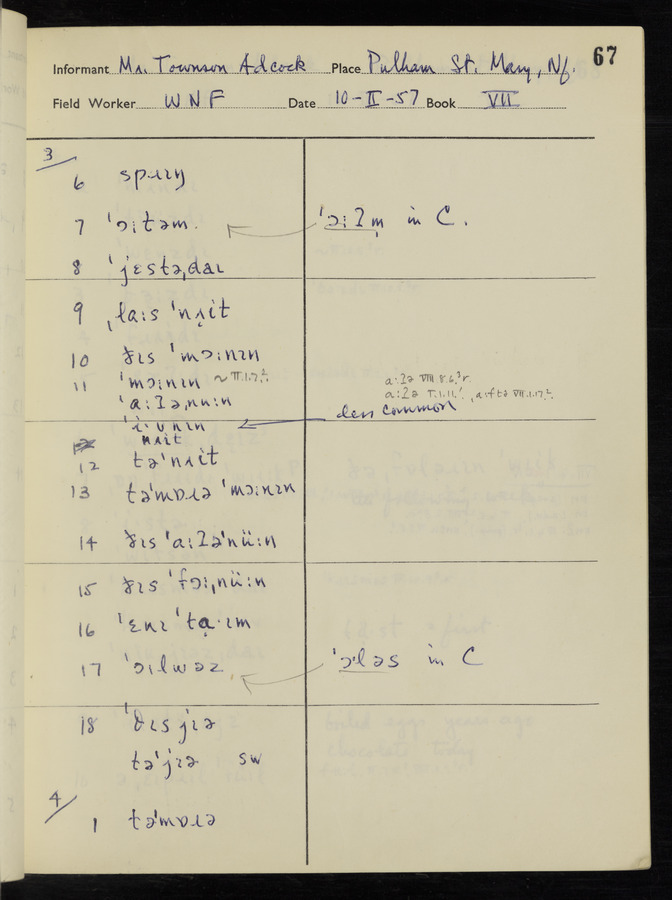 67
Informant Mr. Townson Adcock Place Pulham St. Mary, Nf.
Field Worker WNF Date 10-II-57 Book VII
3
6 spɹɪŋ
7 ˈɔːtəm. ˈɔːʔm̩ in C.
8 ˈjɛstəˌdaɪ
9 ˌlaːs ˈnʌit
10 ðɪs ˈmɔːnɪn
11 ˈmɔːnɪn
ˈaːʔəˌnuːn
less common
ˈiːvnɪn
nʌit
12 təˈnʌit
13 təˈmɒɹə ˈmɔːnɪn
14 ðɪs ˈaːʔəˈnüːn
15 ðɪs ˈfɔːˌnüːn
16 ˈɛnɪ ˈtaˑɪm
17 ˈɔːlwəz ˈɔˑləs in C
18 ˈðɪs jɪə
təˈjɪə sw
4
1 təˈmɒɹə